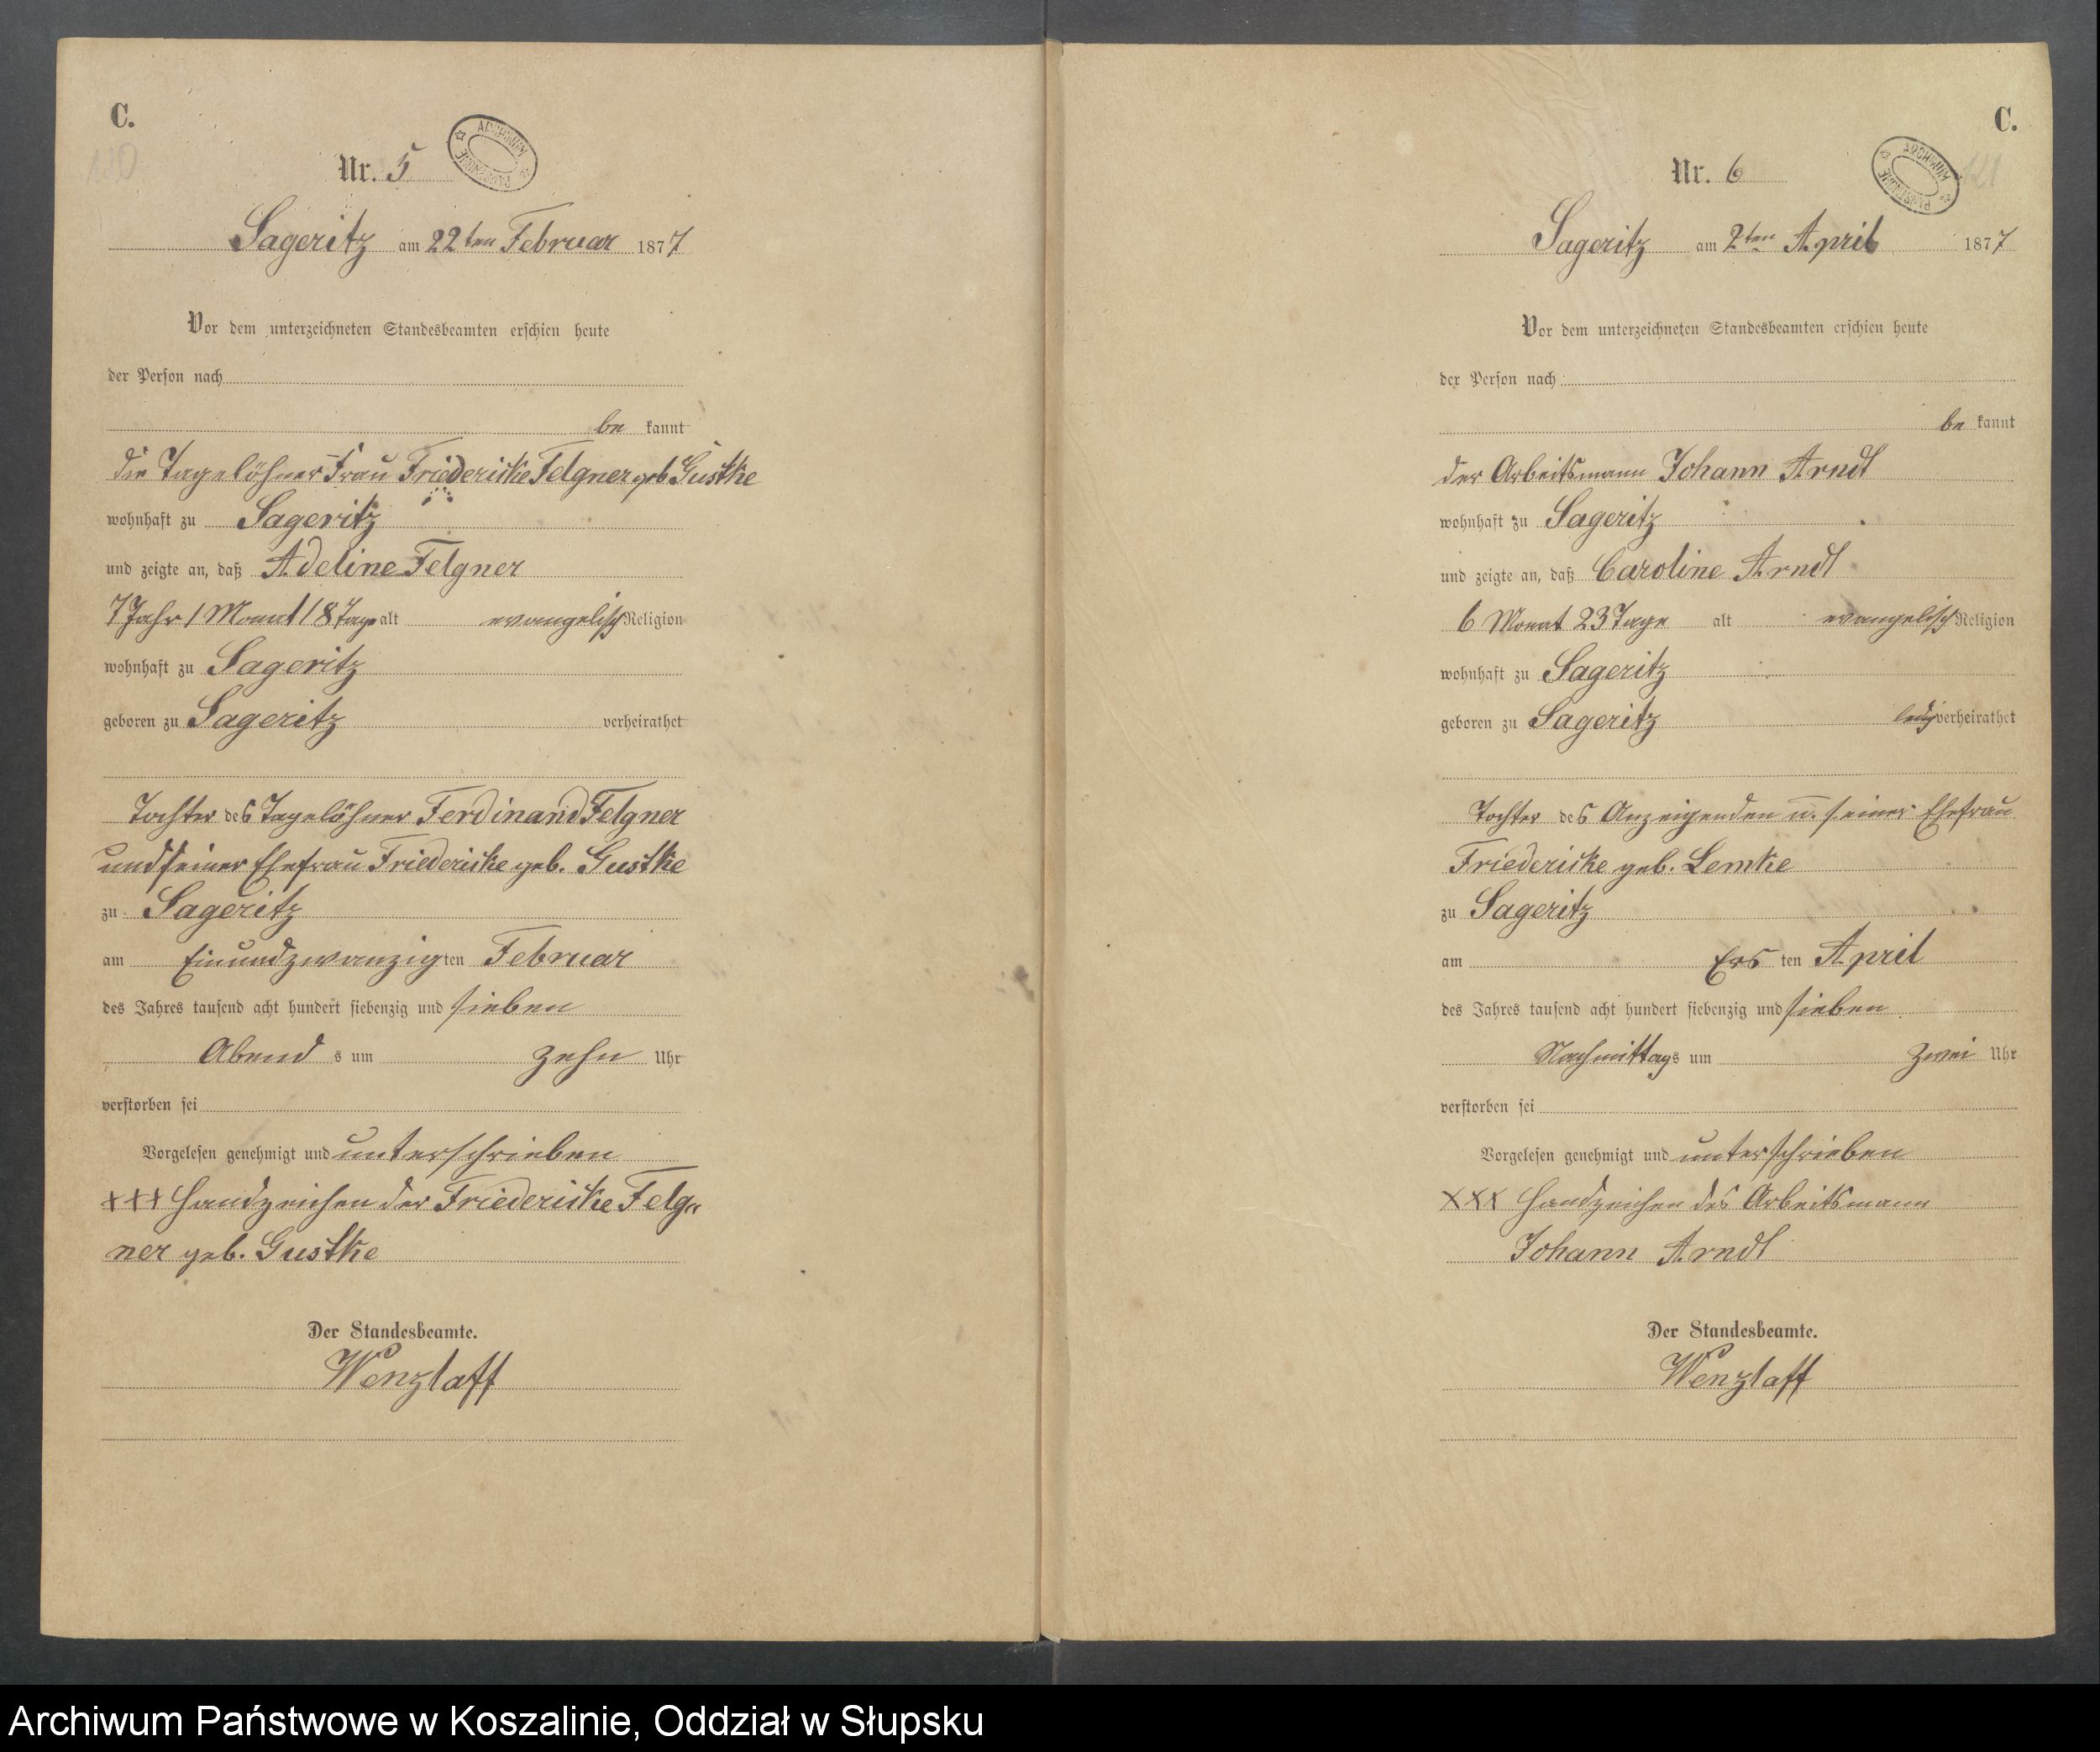 C.
Nr. 5
ARCHIWUM PAŃSTWOWE
Sageritz am 22ten Februar 1877
Vor dem unterzeichneten Standesbeamten erschien heute
der Person nach
be kannt
die Tagelöhner Frau Friedericke Felgner geb Gustke
wohnhaft zu Sageritz
und zeigte an, daß Adeline Felgner
7 Jahr 1 Monat 18 Tage alt evangelisch Religion
wohnhaft zu Sageritz
geboren zu Sageritz verheirathet
Tochter des Tagelöhner Ferdinand Felgner
und seiner Ehefrau Friedericke geb. Gustke
zu Sageritz
am Einundzwanzigten Februar
des Jahres tausend acht hundert siebenzig und sieben
Abend s um zehn Uhr
verstorben sei
Vorgelesen genehmigt und unterschrieben
+++ Handzeichen der Friedericke Felg„
ner geb. Gustke
Der Standesbeamte.
Wenzlaff
C.
Nr. 6
ARCHIWUM PAŃSTWOWE
Sageritz am 2ten April 1877
Vor dem unterzeichneten Standesbeamten erschien heute
der Person nach
be kannt
der Arbeitsmann Johann Arndt
wohnhaft zu Sageritz
und zeigte an, daß Caroline Arndt
6 Monat 23 Tage alt evangelisch Religion
wohnhaft zu Sageritz
geboren zu Sageritz ledig verheirathet
Tochter des Anzeigenden u. seiner Ehefrau
Friedericke geb. Lemke
zu Sageritz
am Ers ten April
des Jahres tausend acht hundert siebenzig und sieben
Nachmittags um zwei Uhr
verstorben sei
Vorgelesen genehmigt und unterschrieben
XXX Handzeichen des Arbeitsmann
Johann Arndt
Der Standesbeamte.
Wenzlaff
Archiwum Państwowe w Koszalinie, Oddział w Słupsku